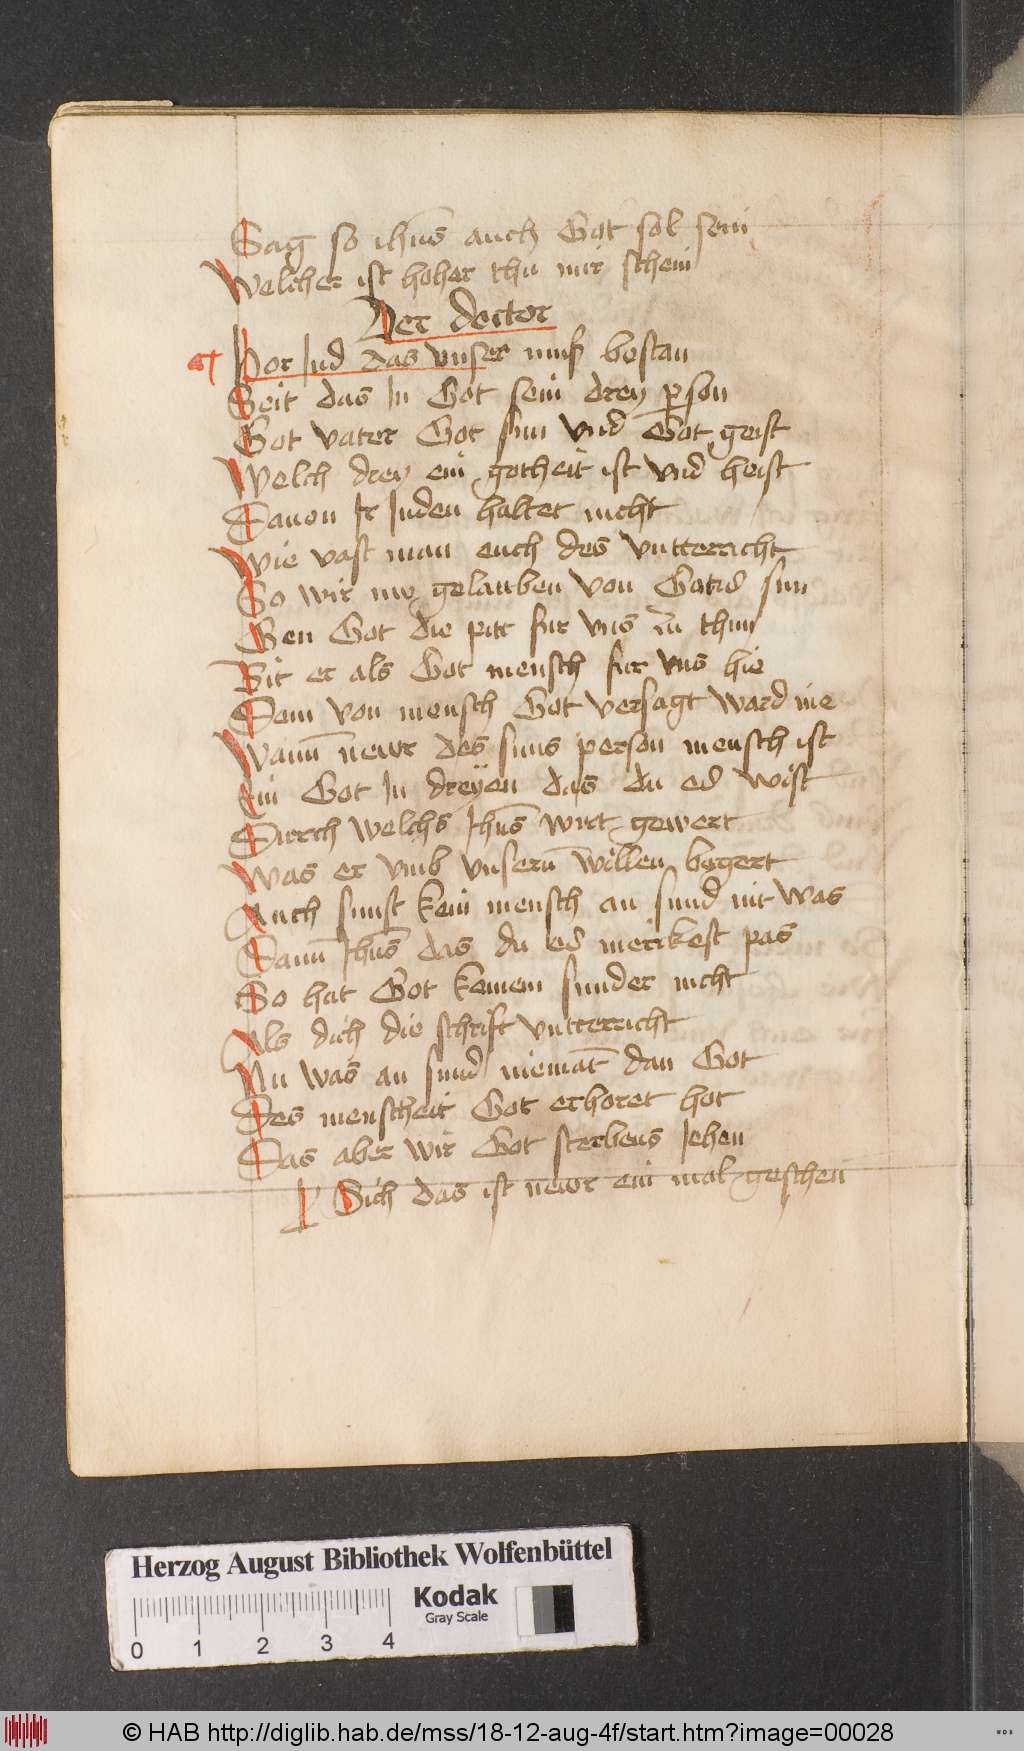 Sag so ihūs auch Got sol sein
Welcher ist hoher thu mir schein
Der doctor
Hor Jud das vnser muß bestan
Seit das In Got sein drey pson
Got vater Got sun vnd Got geist
Welch drey ein gotheit ist vnd heist
Dauon Ir Juden haltet nicht
Wie vast man euch des vntterricht
So wir nw gelauben von Gotes sun
Gen Got die pitt fur vns zu thun
Bit er als Got mensch fur vns hie
Dem von mensch Got versagt ward nie
Wann̄ newr des suns person mensch ist
Ein Got In dreyen das du es wist
Durch welchs Jhūs wirt gewert
Was er vmb vnsern̄ willen begert
Auch sunst kein mensch an sund nit was
Dann̄ Jhūs das du es merckest pas
So hat Got keinem sunder nicht
Als dich die schrift vntterricht
Nu was an sund niemāt dan Got
Des menscheit Got erhoret hot
Das aber wir Got sterbens Jehen
Sich das ist newr ein mal geschen
Herzog August Bibliothek Wolfenbüttel
Kodak
Gray Scale
0 1 2 3 4
© HAB http://diglib.hab.de/mss/18-12-aug-4f/start.htm?image=00028